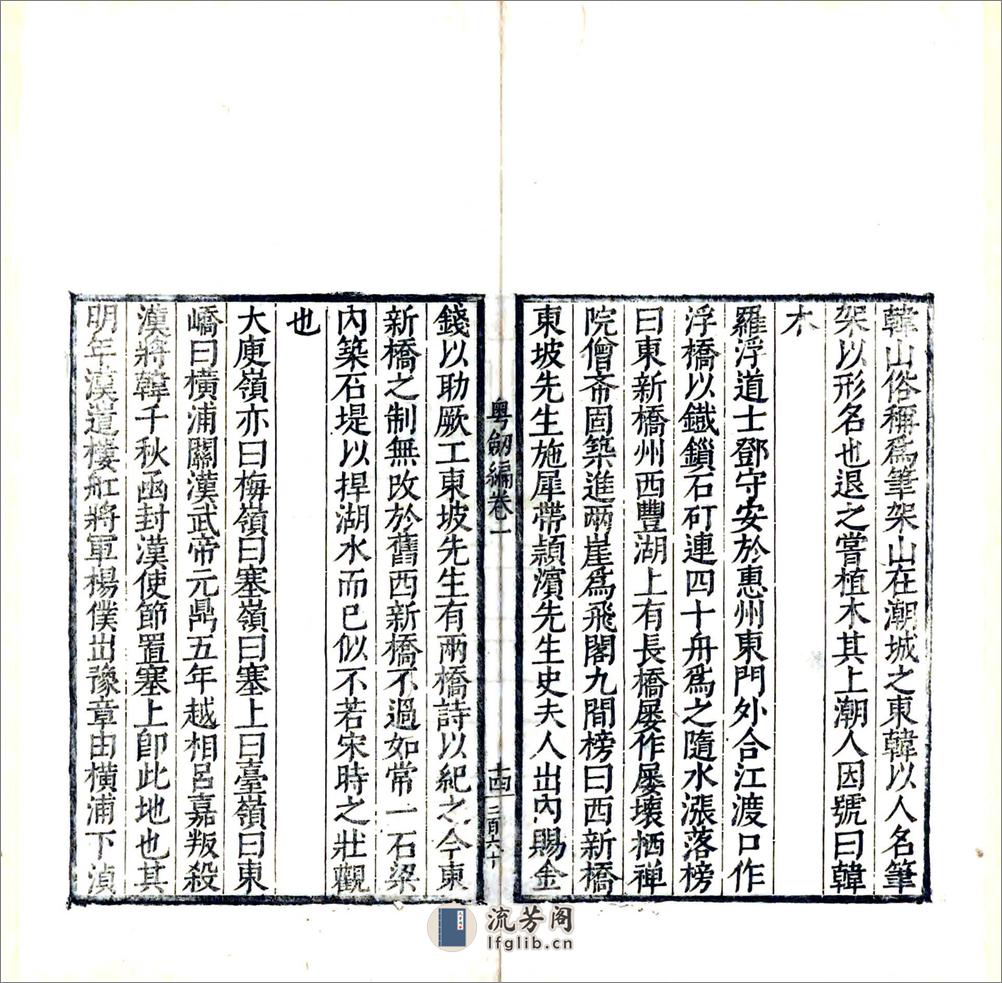 韓山俗稱爲筆架山在潮城之東韓以人名筆
架以形名也退之嘗植木其上潮人因號曰韓
木
羅浮道士鄧守安於惠州東門外合江渡口作
浮橋以鐵鎖石矴連四十舟爲之隨水漲落榜
曰東新橋州西豐湖上有長橋屢作屢壞栖禅
院僧斋固築進兩崖爲飛閣九間榜曰西新橋
東坡先生施犀帶頴濵先生史夫人出內賜金
粤劒編卷一
十四
二百六十
錢以助厥工東坡先生有兩橋詩以紀之今東
新橋之制無改於舊西新橋不過如常一石梁
內築石堤以捍湖水而已似不若宋時之壯觀
也
大庾嶺亦曰梅嶺曰塞嶺曰塞上曰臺嶺曰東
嶠曰橫浦關漢武帝元鼎五年越相呂嘉叛殺
漢將韓千秋函封漢使節置塞上即此地也其
明年漢遣樓舡將軍楊僕出豫章由橫浦下湞
流芳阁
lfglib.cn